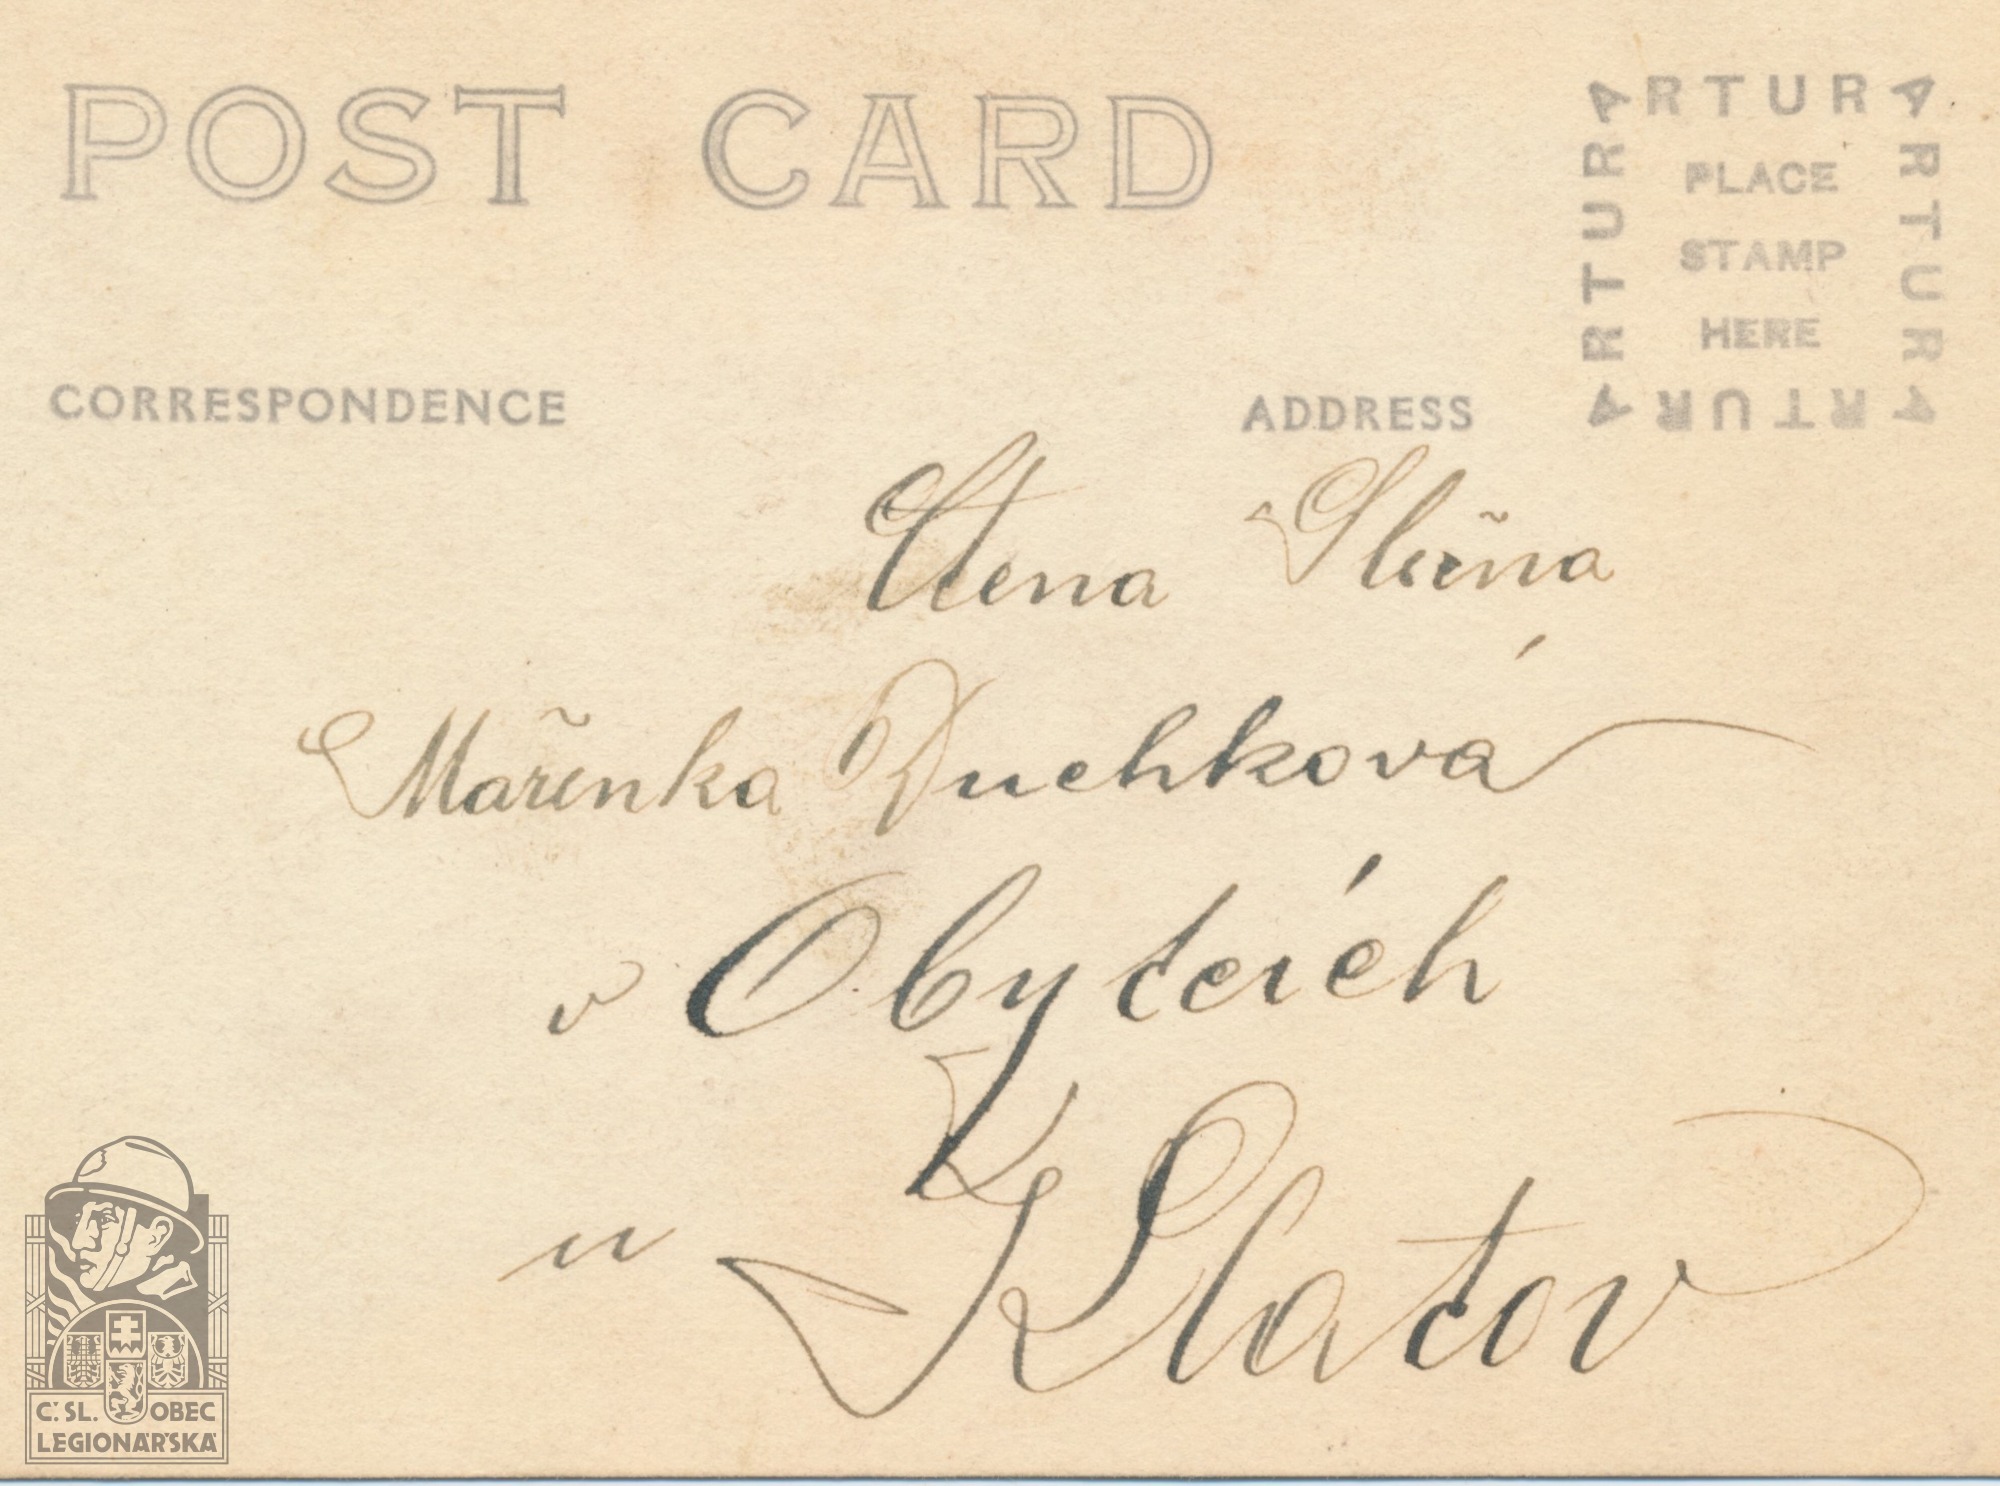 POST CARD
ARTURA
RTURA
RTURA
RTUR
PLACE
STAMP
HERE
CORRESPONDENCE ADDRESS
Ctena Slečna
Mařenka Duchková
v Obytcích
u Klatov
Č. SL. OBEC
LEGIONÁŘSKÁ